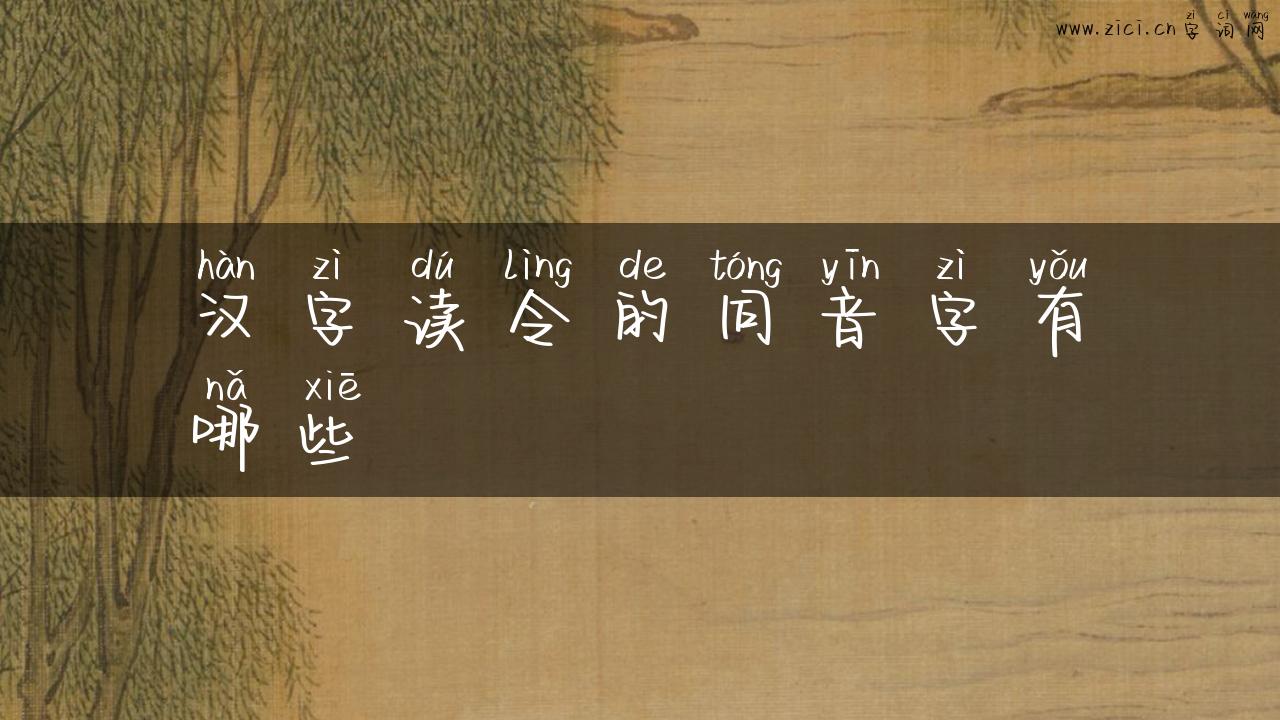 zì cí wǎng
www.zici.cn 字词网
hàn zì dú lìng de tóng yīn zì yǒu
汉字读令的同音字有
nǎ xiē
哪些